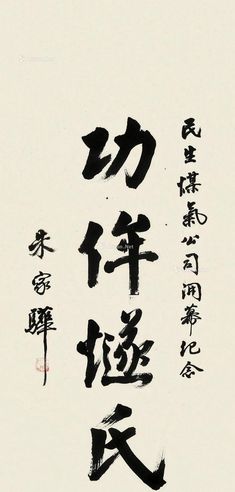 民生煤氣公司開幕紀念
功侔燧氏
朱家驊